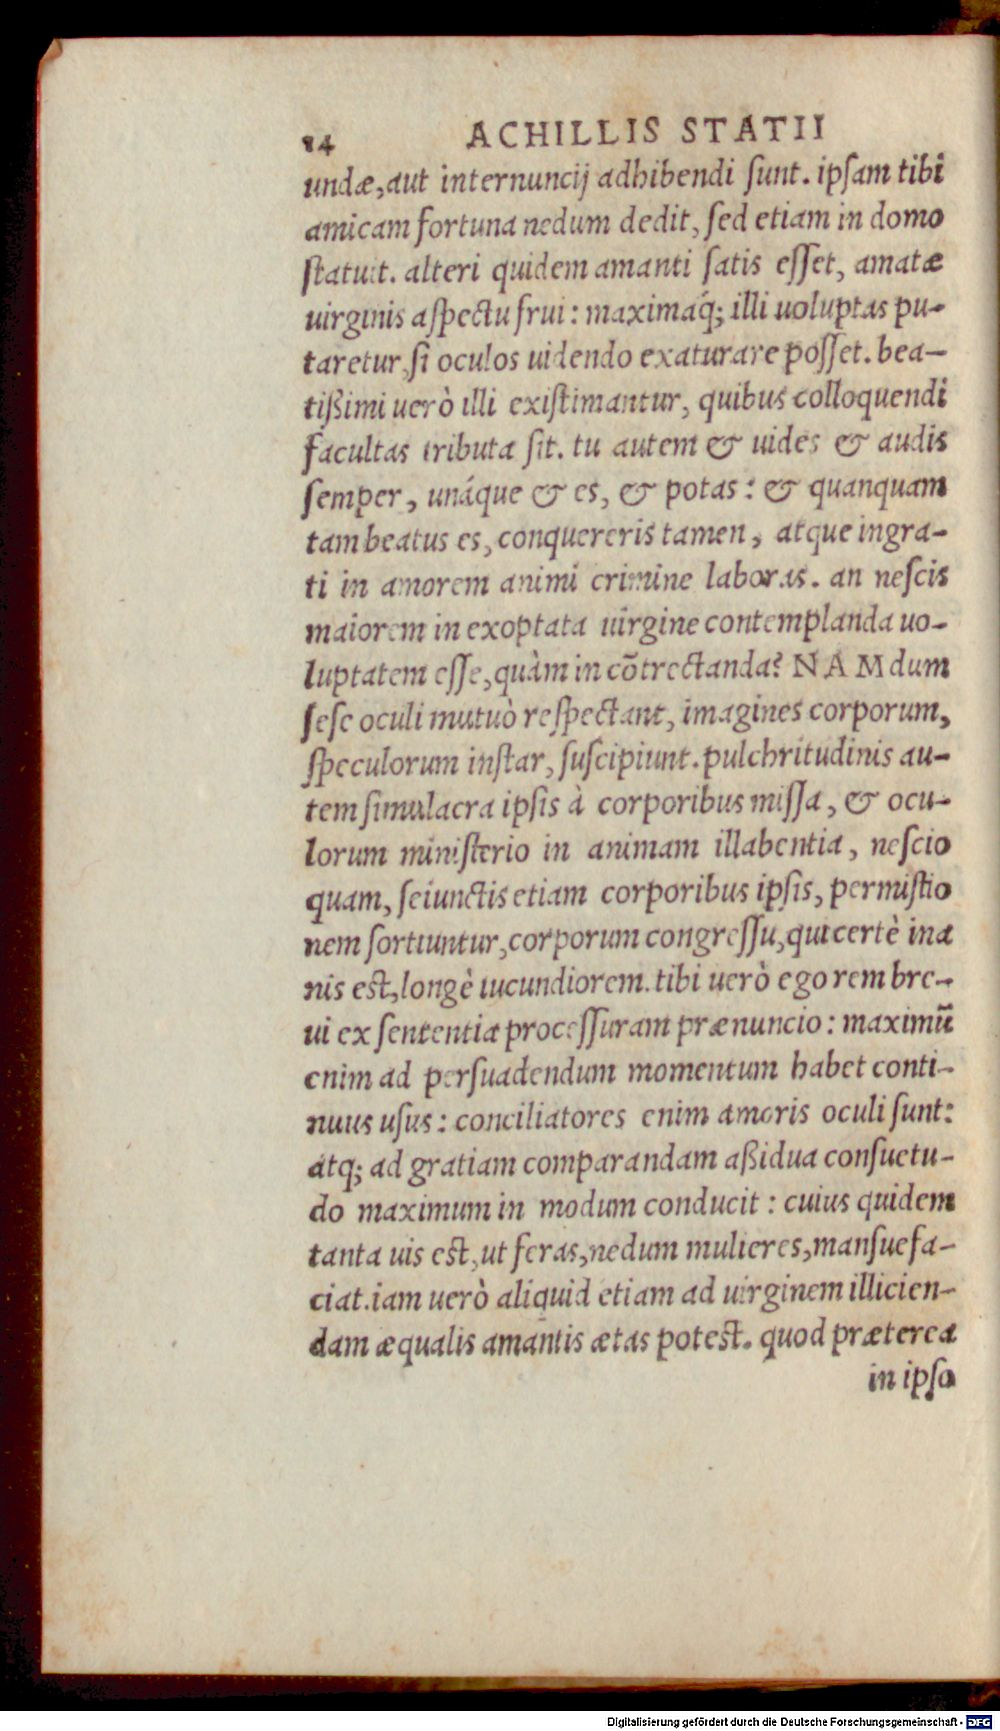 14 ACHILLIS STATII
undæ, aut internuncij adhibendi ſunt. ipſam tibi
amicam fortuna nedum dedit, ſed etiam in domo
ſtatuit. alteri quidem amanti ſatis eſſet, amatæ
uirginis aſpectu frui: maximáq; illi uoluptas pu-
taretur, ſi oculos uidendo exaturare poſſet. bea-
tißimi uerò illi exiſtimantur, quibus colloquendi
facultas tributa ſit. tu autem & uides & audis
ſemper, unáque & es, & potas: & quanquam
tam beatus es, conquereris tamen, atque ingra-
ti in amorem animi crimine laboras. an neſcis
maiorem in exoptata uirgine contemplanda uo-
luptatem eſſe, quàm in cōtrectanda? NAM dum
ſeſe oculi mutuò reſpectant, imagines corporum,
ſpeculorum inſtar, ſuſcipiunt. pulchritudinis au-
tem ſimulacra ipſis à corporibus miſſa, & ocu-
lorum miniſterio in animam illabentia, neſcio
quam, ſeiunctis etiam corporibus ipſis, permiſtio
nem ſortiuntur, corporum congreſſu, qui certè ina
nis eſt, longè iucundiorem. tibi uerò ego rem bre-
ui ex ſententia proceſſuram prænuncio: maximū
enim ad perſuadendum momentum habet conti-
nuus uſus: conciliatores enim amoris oculi ſunt:
atq; ad gratiam comparandam aßidua conſuetu-
do maximum in modum conducit: cuius quidem
tanta uis eſt, ut feras, nedum mulieres, manſuefa-
ciat. iam uerò aliquid etiam ad uirginem illicien-
dam æqualis amantis ætas poteſt. quod præterea
in ipſo
Digitalisierung gefördert durch die Deutsche Forschungsgemeinschaft - DFG